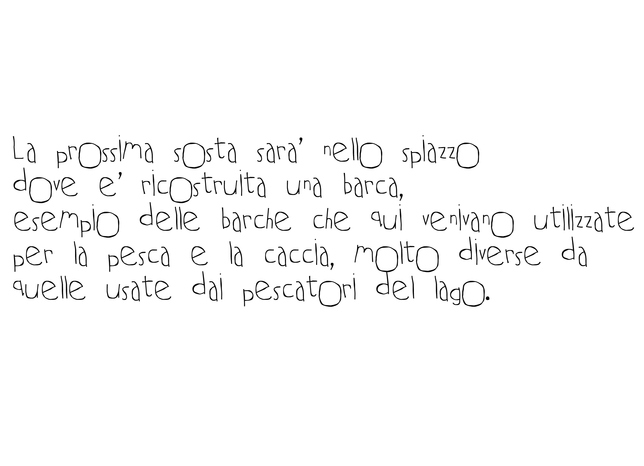 La prossima sosta sara' nello spiazzo
dove e' ricostruita una barca,
esempio delle barche che qui venivano utilizzate
per la pesca e la caccia, molto diverse da
quelle usate dai pescatori del lago.